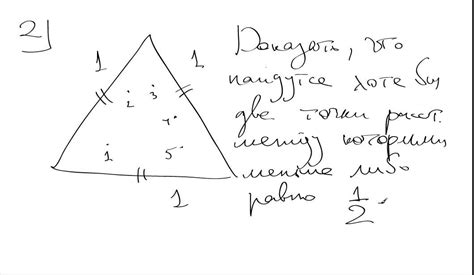 2)
1
1
2
3
4
1
5
1
Доказать, что
найдутся хотя бы
две точки расст.
между которыми
меньше либо
равно 1/2.